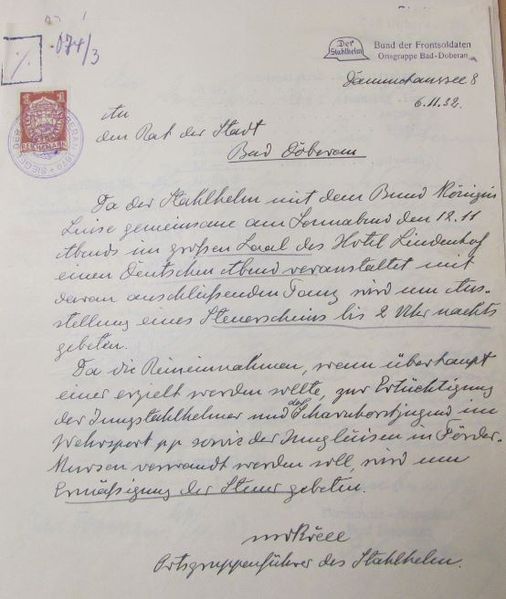 074/3
Der Stahlhelm
Bund der Frontsoldaten
Ortsgruppe Bad-Doberan
Dammchaussee 8
6.11.32.
An
den Rat der Stadt
Bad Doberan
Da der Stahlhelm mit dem Bund Königin
Luise gemeinsame am Sonnabend den 12.11
Abends im großen Saal des Hotel Lindenhof
einen Deutschen Abend veranstaltet mit
daran anschließenden Tanz wird um Aus-
stellung eines Steuerscheins bis 2 Uhr nachts
gebeten.
Da die Reineinnahmen, wenn überhaupt
einer erzielt werden sollte, zur Ertüchtigung
der Jungstahlhelmer und der Scharnhorstjugend im
Wehrsport pp sowie der Jungluisen in Förder-
Kursen verwandt werden soll, wird um
Ermäßigung der Steuer gebeten.
Ortsgruppenführer des Stahlhelm.